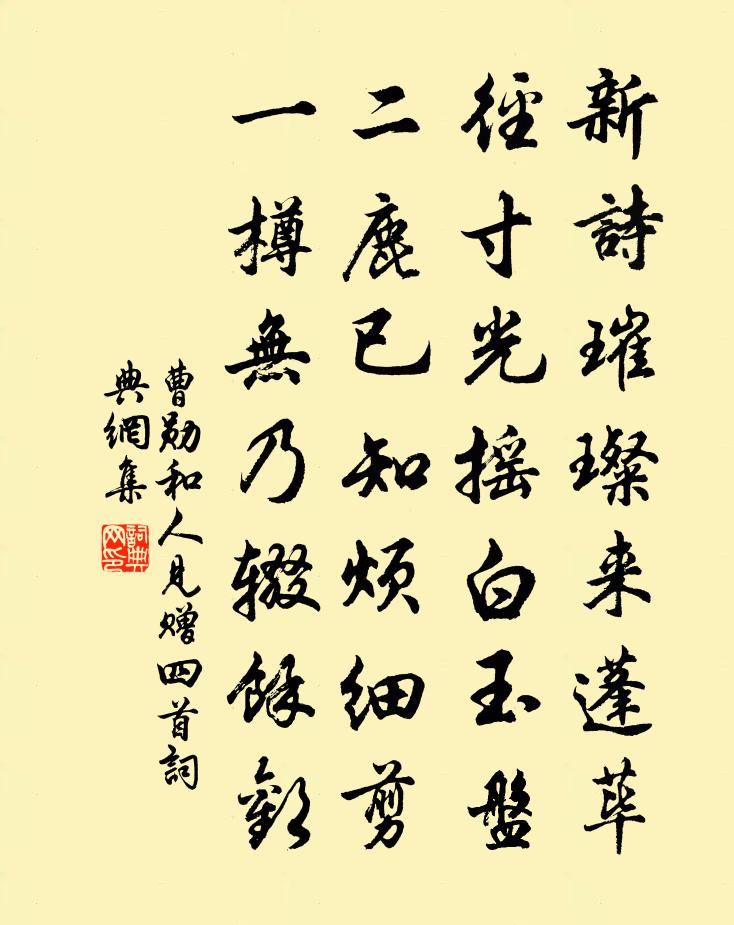 新詩璀璨来蓬蓽
徑寸光摇白玉盤
二鹿已知煩細剪
一樽無乃辍餘歡
曹勛和人見贈四首詞
典網集
詞典
网印